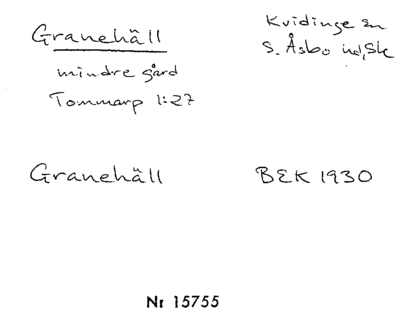 Granehäll
mindre gård
Tommarp 1:27
Kvidinge sn
S. Åsbo hd, Sk
Granehäll
BEK 1930
Nr 15755